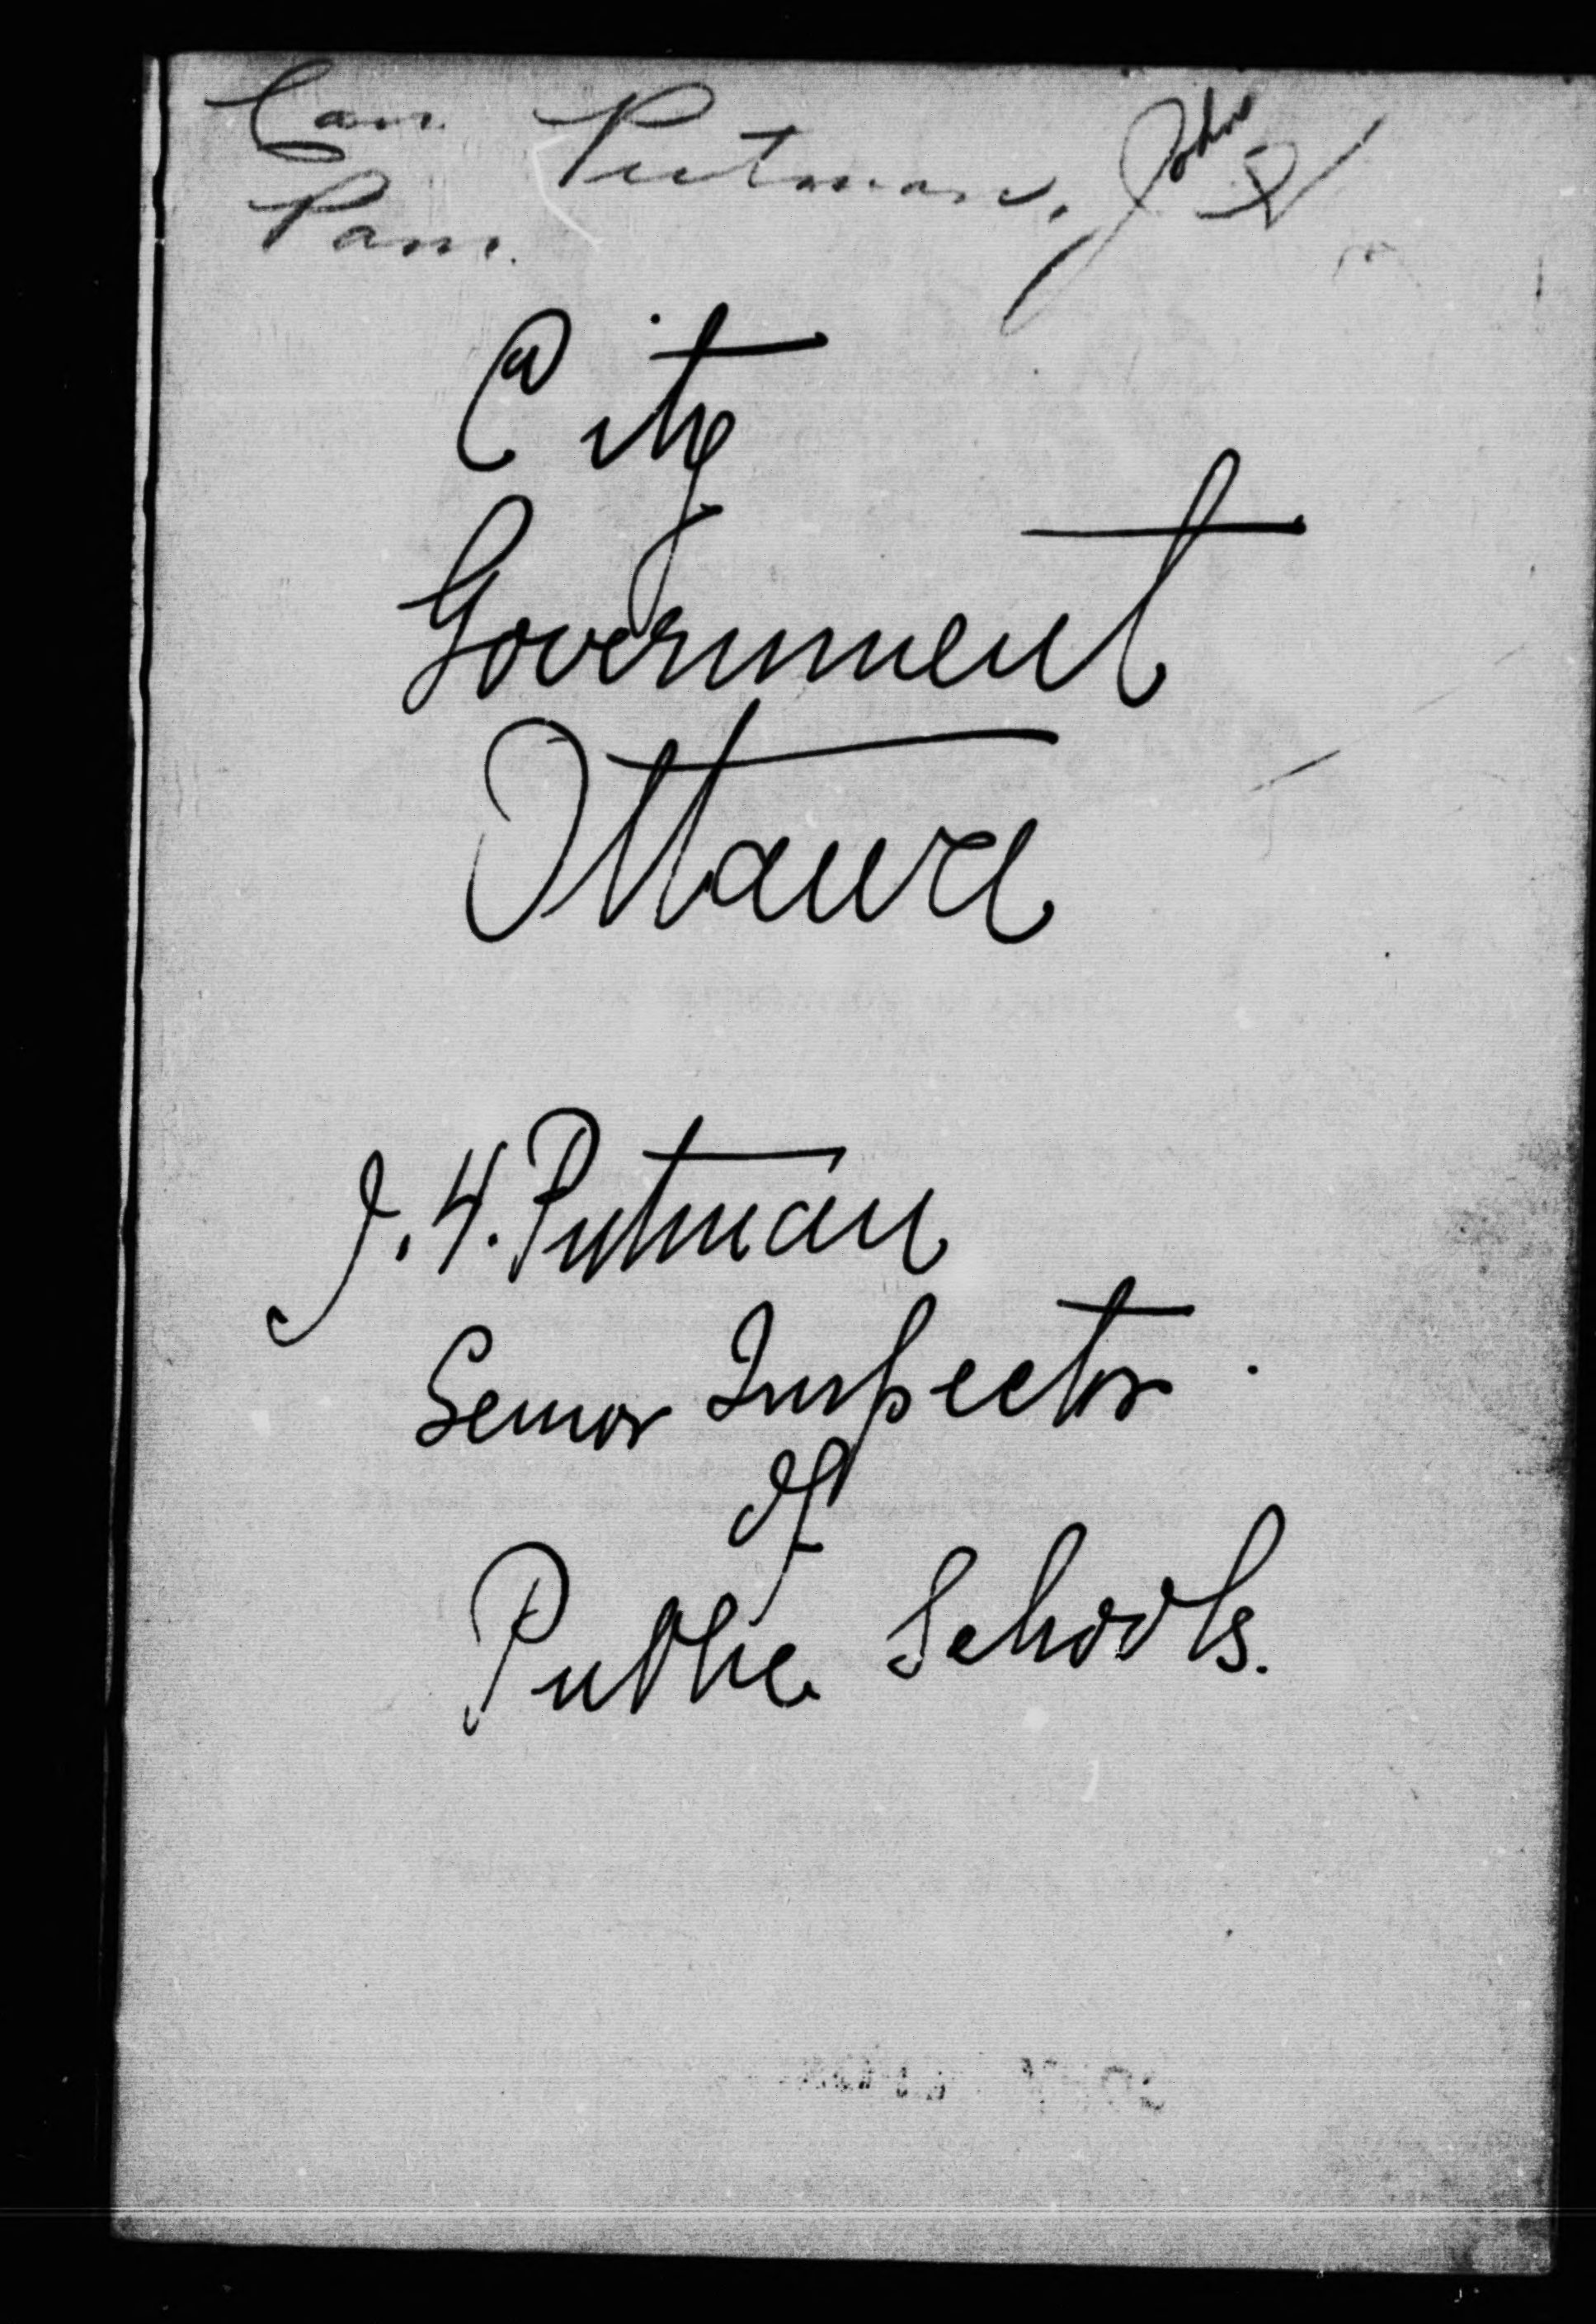 Can. Putman, John
Pam.
City
Government
Ottawa
J. H. Putman
Senior Inspector
of
Public Schools.